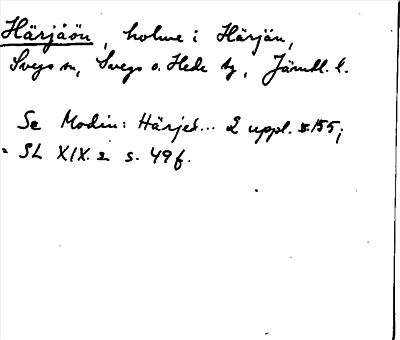 Härjåön, holme i Härjån,
Svegs sn, Svegs o. Hede tg, Jämtl. l.
Se Modin: Härjed... 2 uppl. s. 155;
SL XIX. 2 s. 49 f.